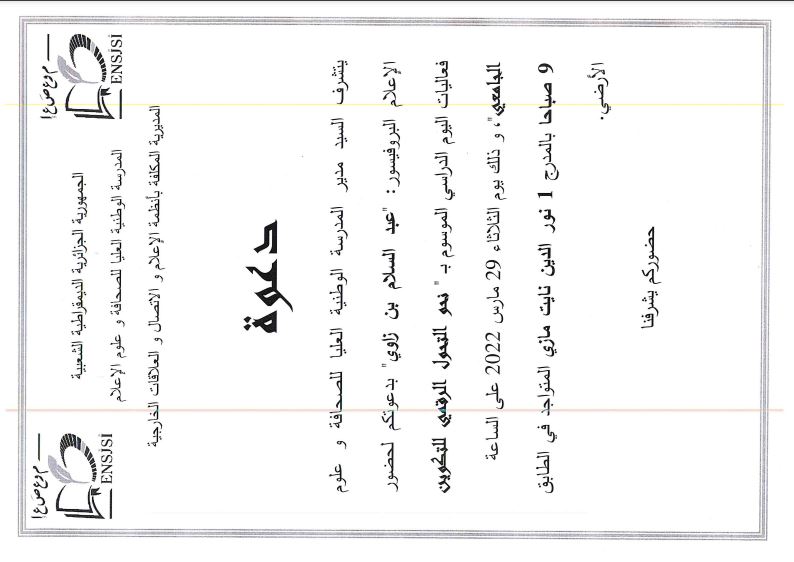 الجمهورية الجزائرية الديمقراطية الشعبية
المدرسة الوطنية العليا للصحافة و علوم الإعلام
المديرية المكلفة بأنظمة الإعلام و الاتصال و العلاقات الخارجية
م و ع ص ع إ
ENSJSI
م و ع ص ع إ
ENSJSI
دعوة
يتشرف السيد مدير المدرسة الوطنية العليا للصحافة و علوم
الإعلام البروفيسور: "عبد السلام بن زاوي" بدعوتكم لحضور
فعاليات اليوم الدراسي الموسوم بـ " نحو التحول الرقمي للتكوين
الجامعي"، و ذلك يوم الثلاثاء 29 مارس 2022 على الساعة
9 صباحا بالمدرج 1 نور الدين نايت مازي المتواجد في الطابق
الأرضي.
حضوركم يشرفنا